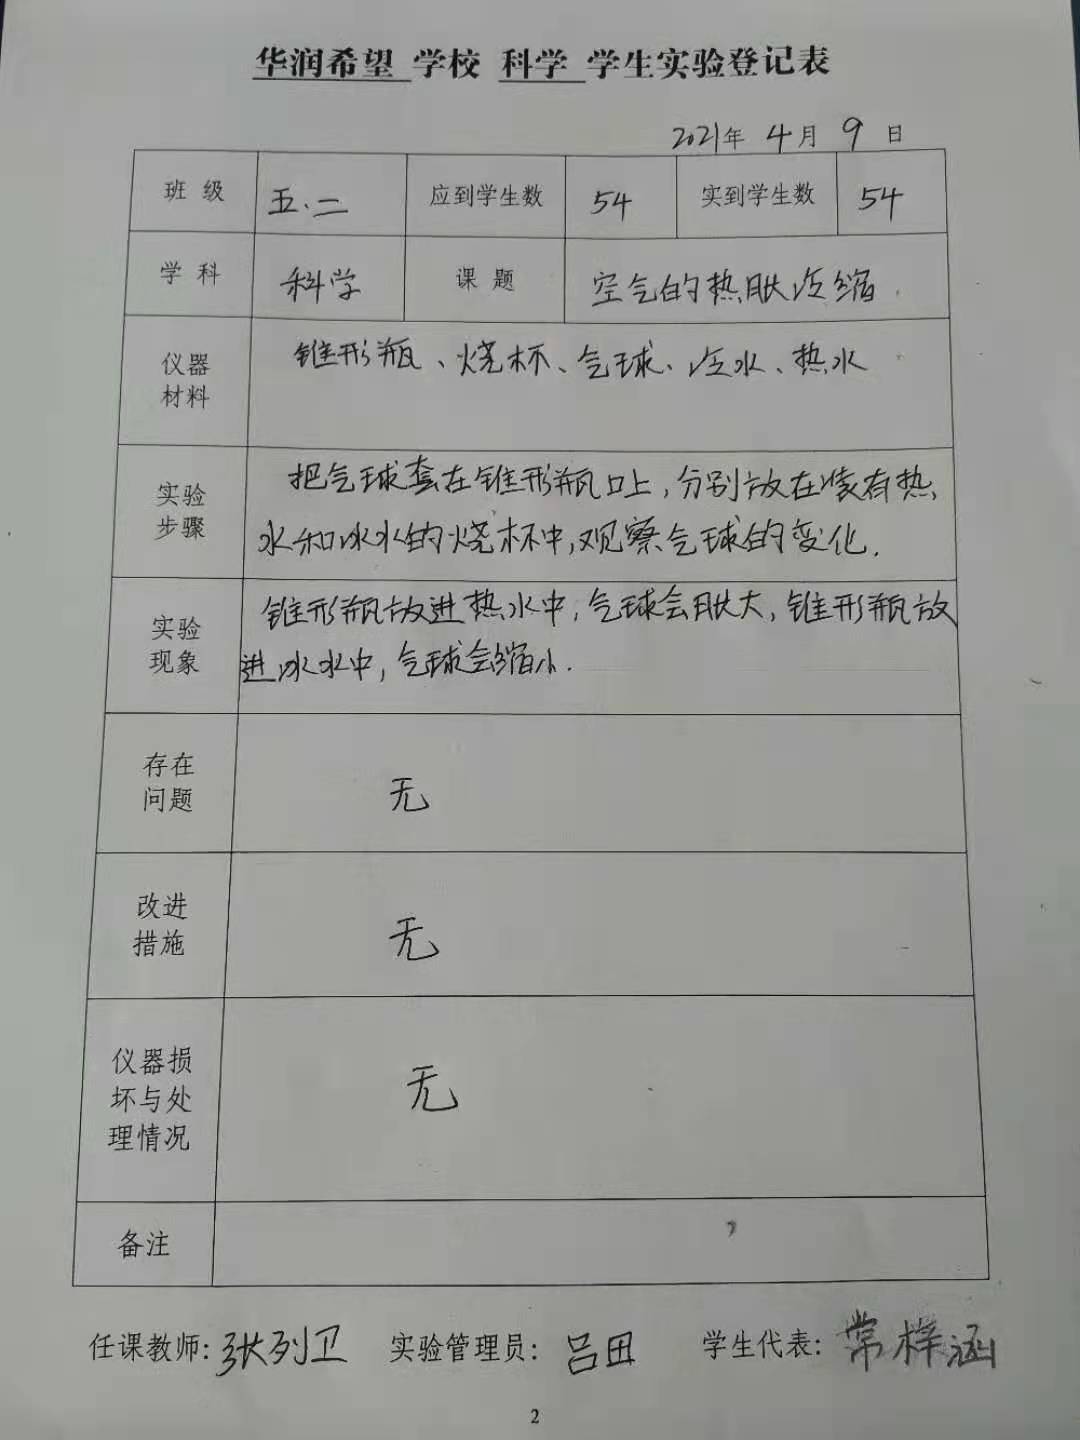 华润希望 学校 科学 学生实验登记表
2021年 4月 9日
班级 五.二 应到学生数 54 实到学生数 54
学科 科学 课题 空气的热胀冷缩
仪器
材料
锥形瓶、烧杯、气球、冷水、热水
实验
步骤
把气球套在锥形瓶口上,分别放在装有热
水和冰水的烧杯中,观察气球的变化.
实验
现象
锥形瓶放进热水中,气球会胀大,锥形瓶放
进冰水中,气球会缩小.
存在
问题
无
改进
措施
无
仪器损
坏与处
理情况
无
备注
任课教师:张列卫 实验管理员:吕田 学生代表:常梓涵
2